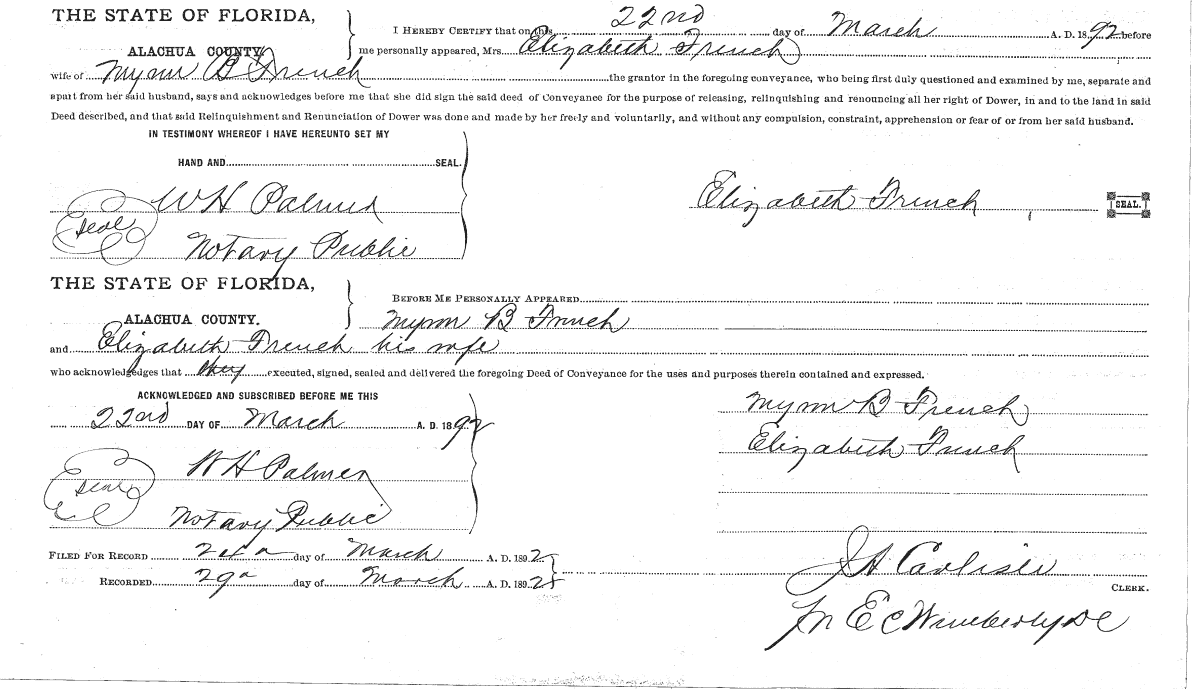 THE STATE OF FLORIDA,
ALACHUA COUNTY
I HEREBY CERTIFY that on this 22nd day of March A. D. 1892 before
me personally appeared, Mrs. Elizabeth French
wife of Myron B French the grantor in the foregoing conveyance, who being first duly questioned and examined by me, separate and
apart from her said husband, says and acknowledges before me that she did sign the said deed of Conveyance for the purpose of releasing, relinquishing and renouncing all her right of Dower, in and to the land in said
Deed described, and that said Relinquishment and Renunciation of Dower was done and made by her freely and voluntarily, and without any compulsion, constraint, apprehension or fear of or from her said husband.
IN TESTIMONY WHEREOF I HAVE HEREUNTO SET MY
HAND AND SEAL.
WH Palmer
Seal
Notary Public
Elizabeth French SEAL.
THE STATE OF FLORIDA,
ALACHUA COUNTY.
BEFORE ME PERSONALLY APPEARED
Myron B French
and Elizabeth French his wife
who acknowledges that they executed, signed, sealed and delivered the foregoing Deed of Conveyance for the uses and purposes therein contained and expressed.
ACKNOWLEDGED AND SUBSCRIBED BEFORE ME THIS
22nd DAY OF March A. D. 1892
WH Palmer
Seal
Notary Public
Myron B French
Elizabeth French
FILED FOR RECORD day of March A. D. 1892
RECORDED 29 day of March A. D. 1892
CLERK.
E C Wimberly DC